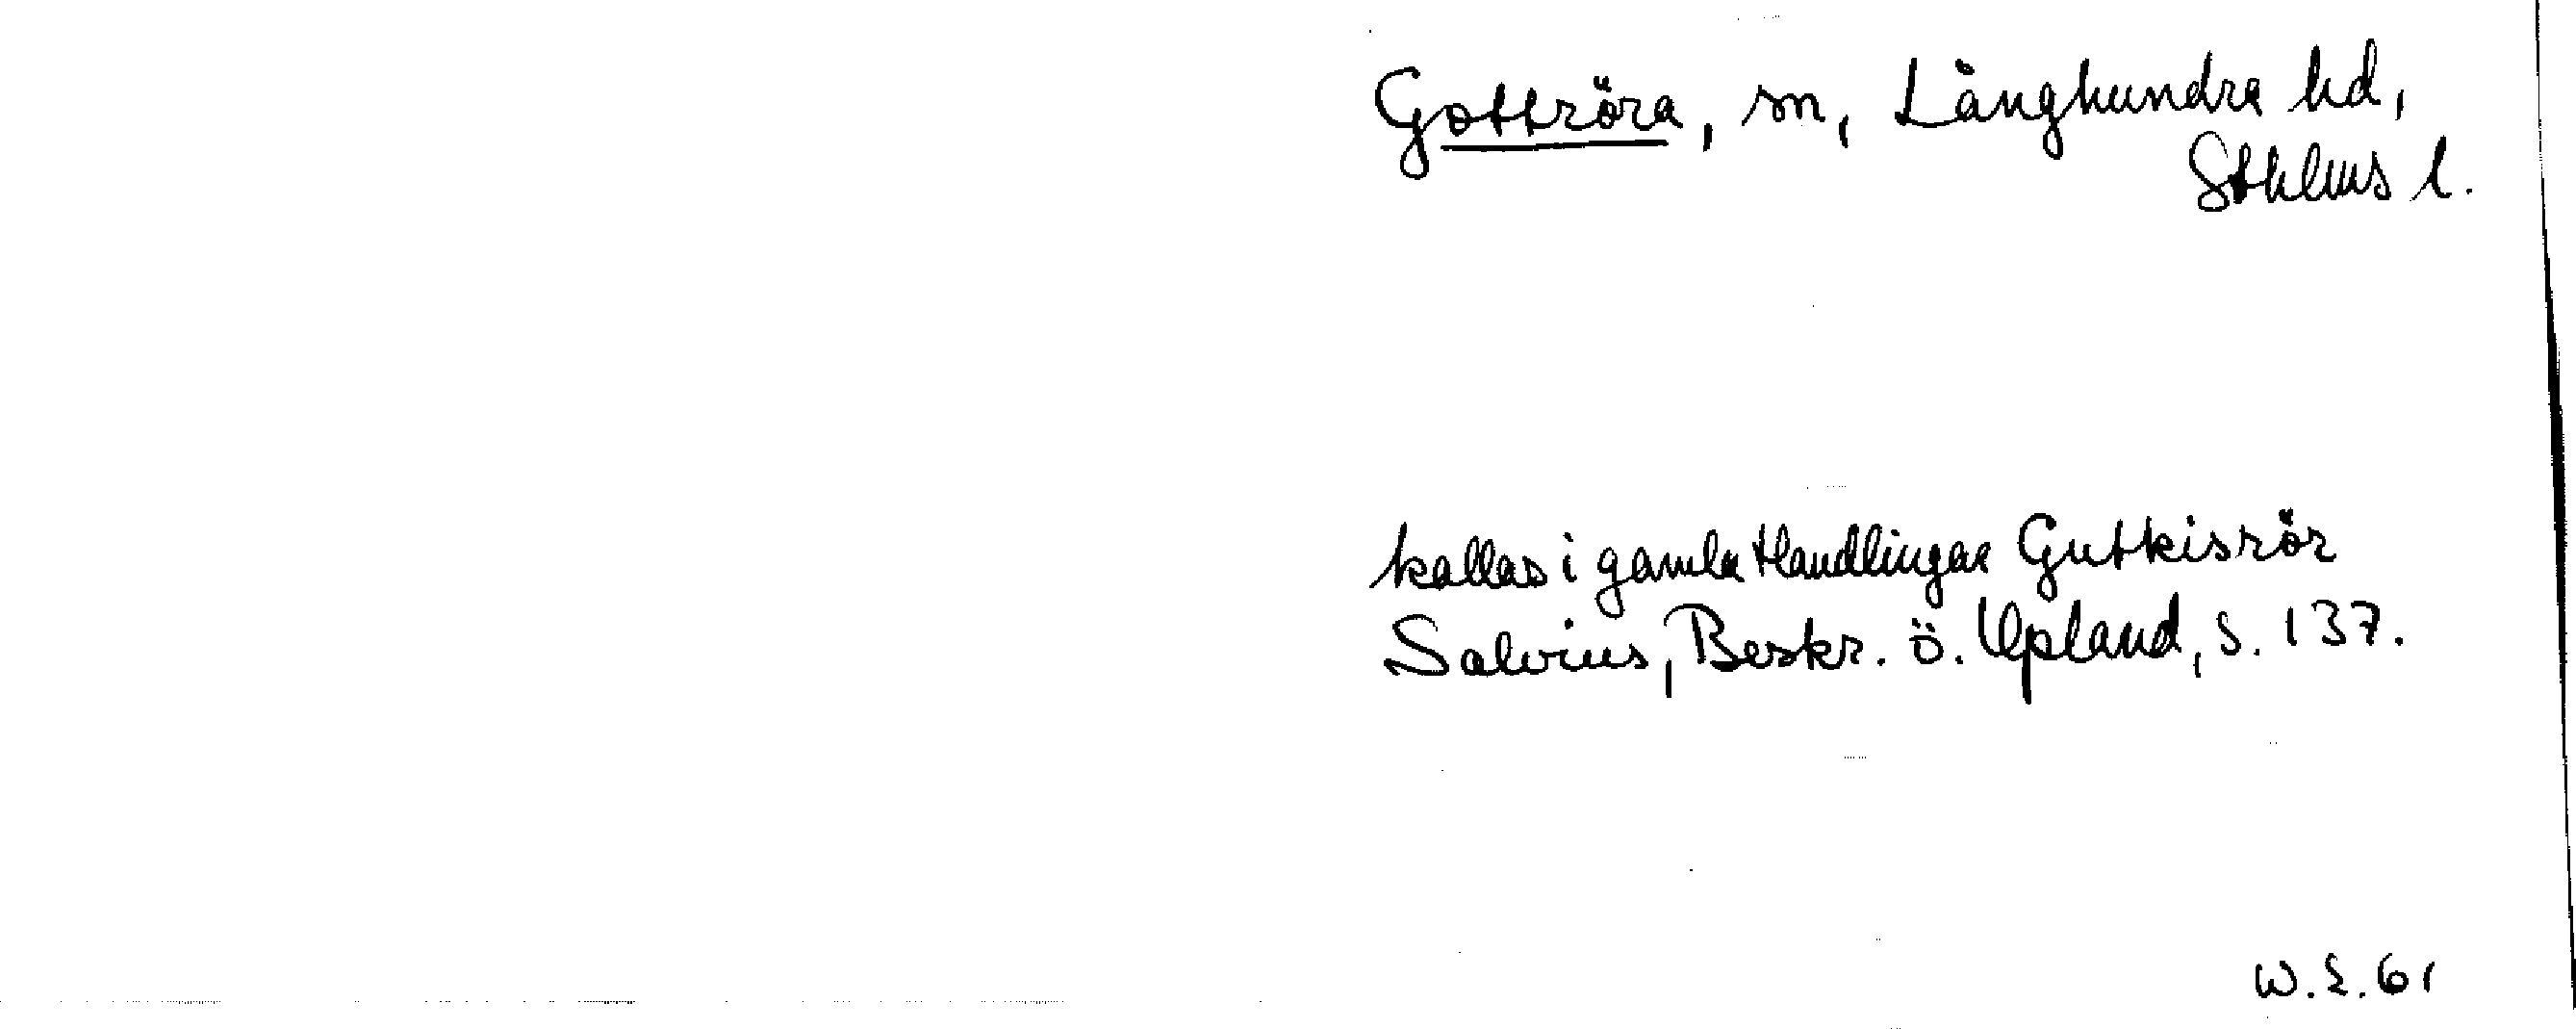 Gottröra, sn, Långhundra hd,
Sthlms l.
kallas i gamla Handlingar Gutkisrör
Salvius, Beskr. ö. Upland, S. 137.
W.S.61